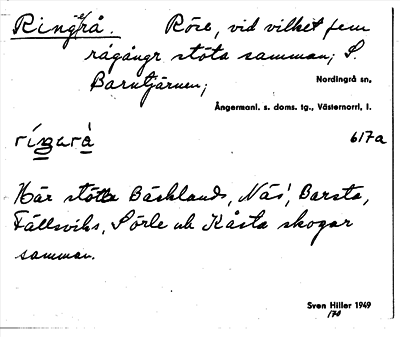 Ringrå. Röse, vid vilket fem
rågångr stöta samman; S.
Barntjärnen;
Nordingrå sn,
Ångermanl. s. doms. tg., Västernorrl. l.
617a
Här stötta Bäcklands, Näs', Barsta,
Fällsviks, Sörle och Kåsta skogar
samman.
Sven Hiller 1949
170